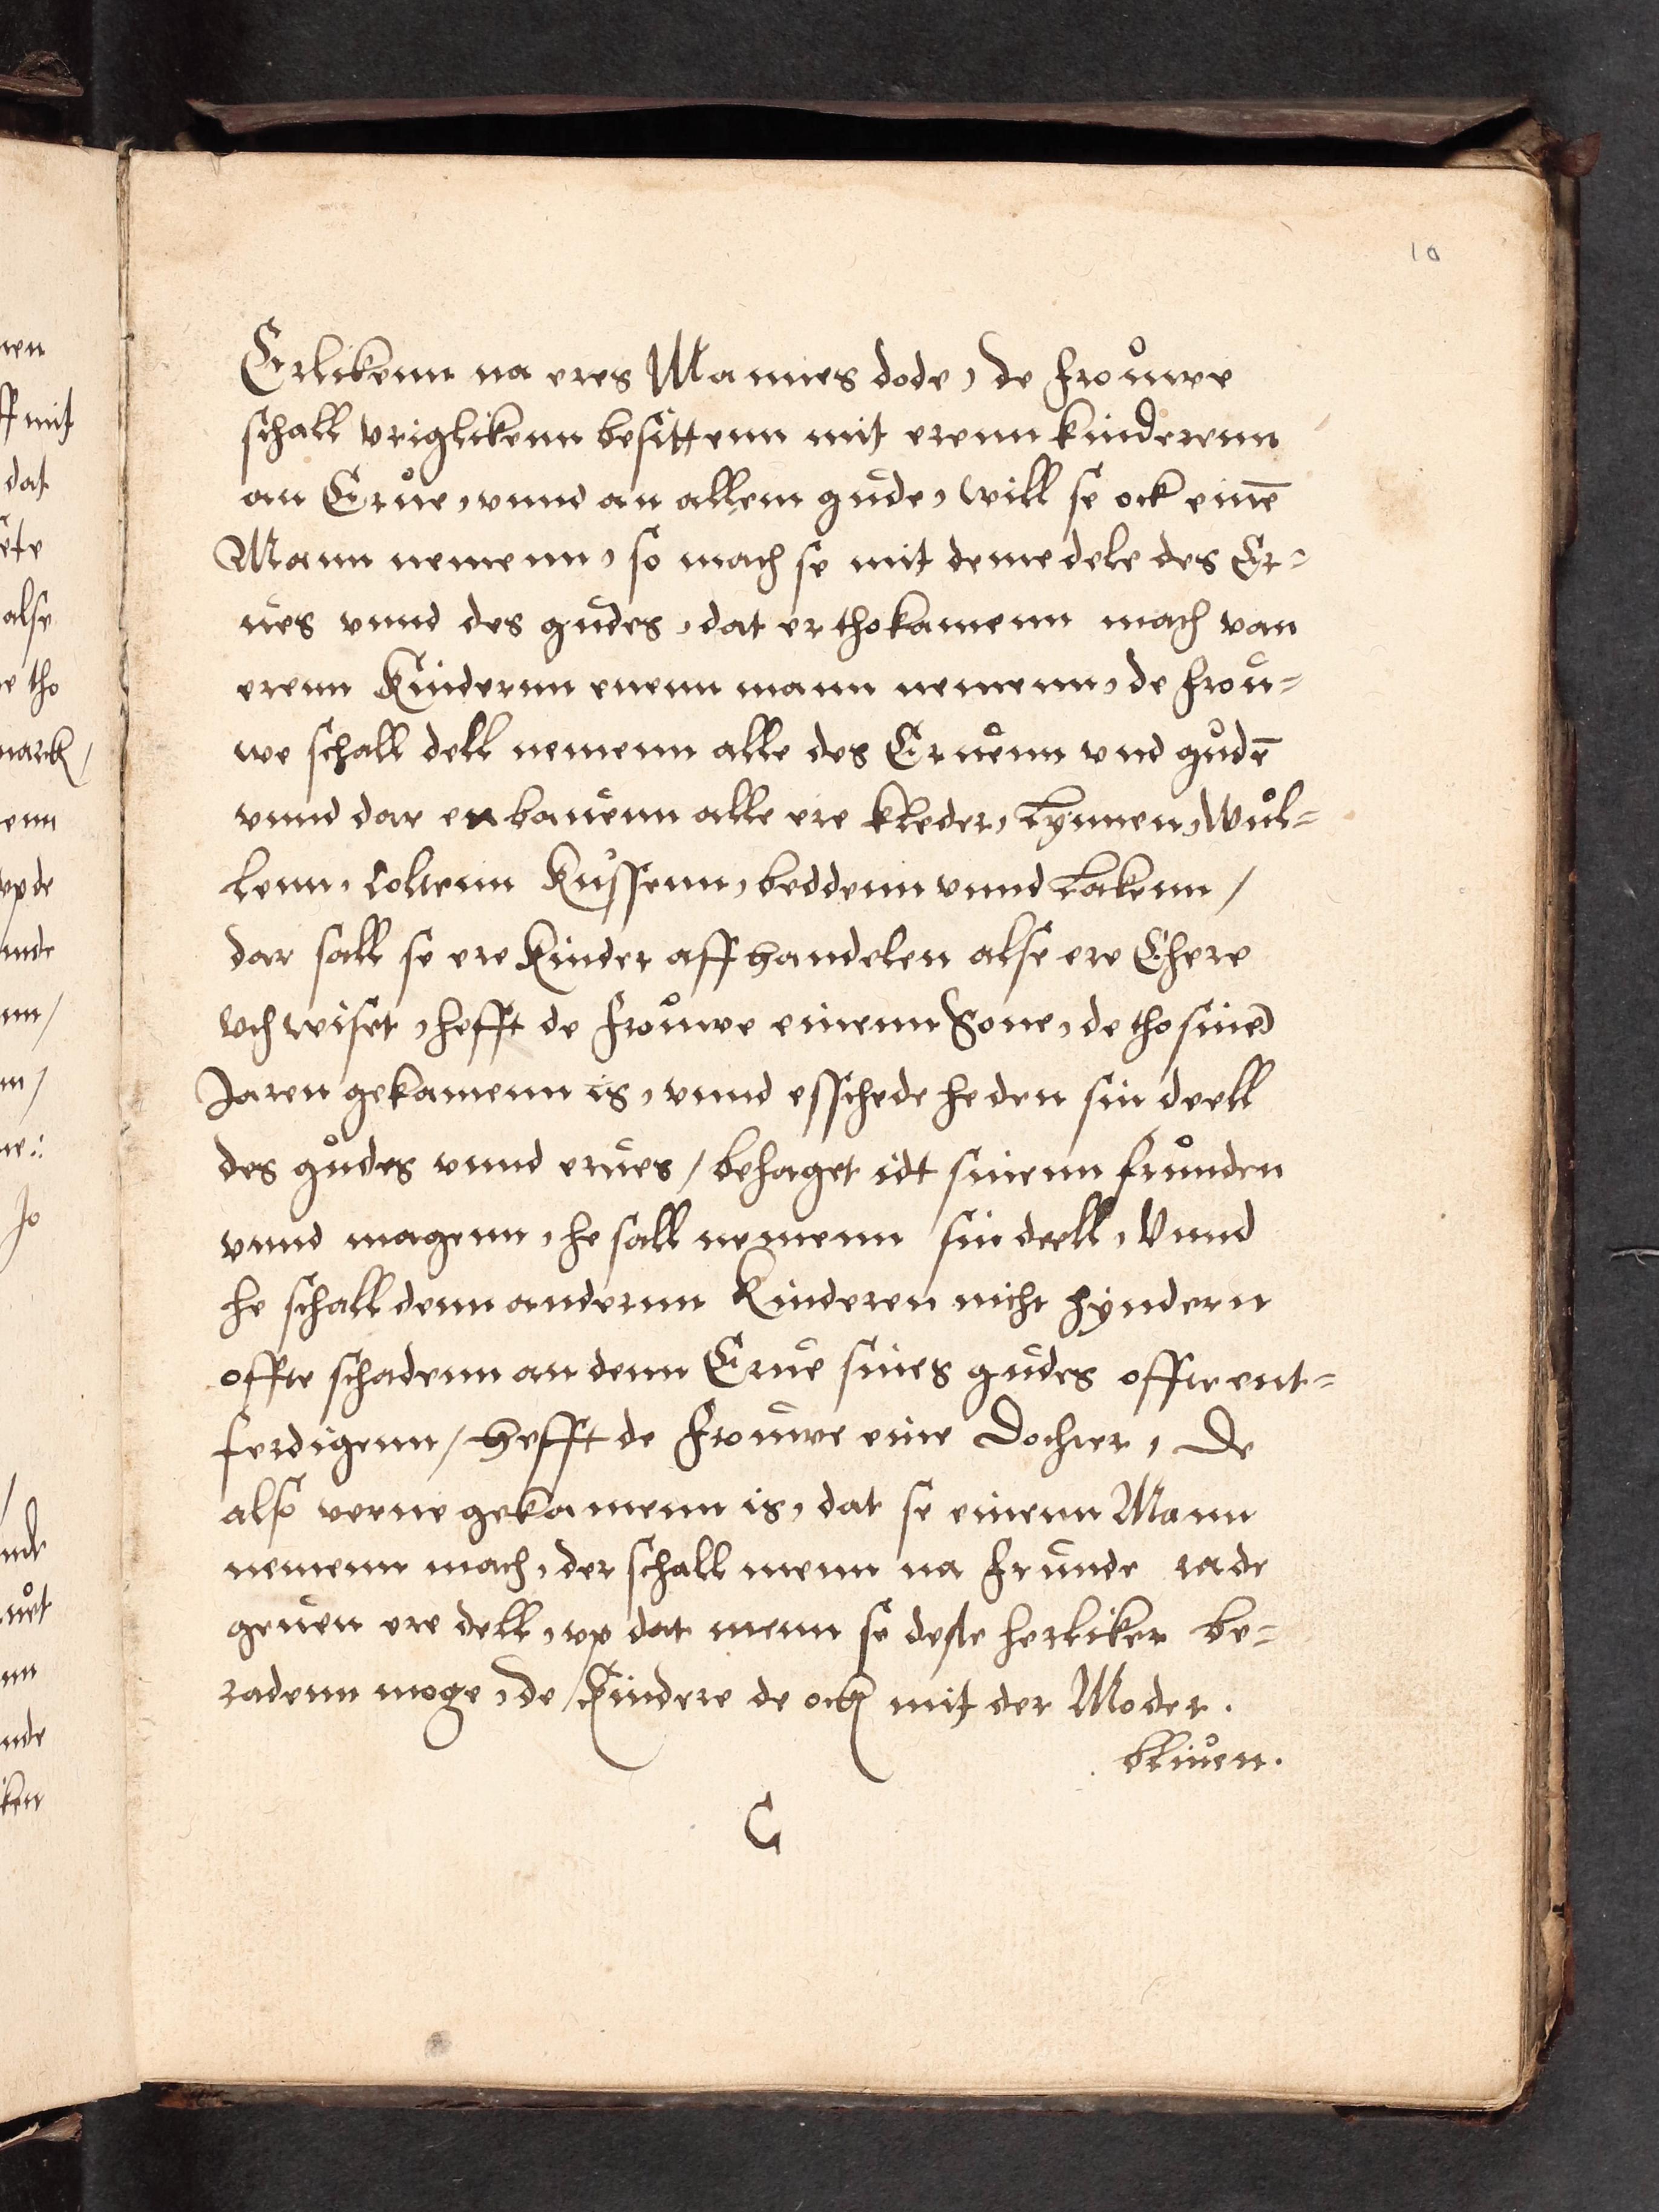 10
Erlikenn na eres Mannes dode, de frouwe
schall vriglikenn besittenn mit erenn kinderenn
an Erue, vnnd an allem gude, will se ock einē
Mann nemenn, so mach se mit deme dele des Er=
ues vnnd des gudes, dat er thokamenn mach van
erenn Kindernn enenn mann nemenn, de frou=
we schall dell nemenn alle des Eruenn vnd gudē
vnnd dar enbauenn alle ere kleder, Lynnen, Wul=
lenn, Coltenn Kussenn, beddenn vnnd Lakenn /
dar sall se ere Kinder aff handelen alse ere Ehere
vth wiset, hefft de frouwe einenn Sone, de tho sinen
Jaren gekamenn is, vnnd esschede he den sin deell
des gudes vnnd erues / behaget idt sinenn frunden
vnnd magenn, he sall nemenn sin deell, Vnnd
he schall denn andernn Kinderen nicht hyndern
offte schadenn an denn Erue sines gudes offte ent=
ferdigenn / Hefft de frouwe eine Dochter, De
also verne gekamenn is, dat se einenn Mann
nemenn mach, der schall menn na frunde rade
geuen ere dell, vp dat menn se deste herliker be=
radenn moge, de Kindere de ock mit der Moder.
bliuen.
C
nen
ff mit
dat
ete
alse
e tho
marck /
enn
vp de
nnde
nn /
m /
ne:
Jo
nde
uet
nn
nde
iken